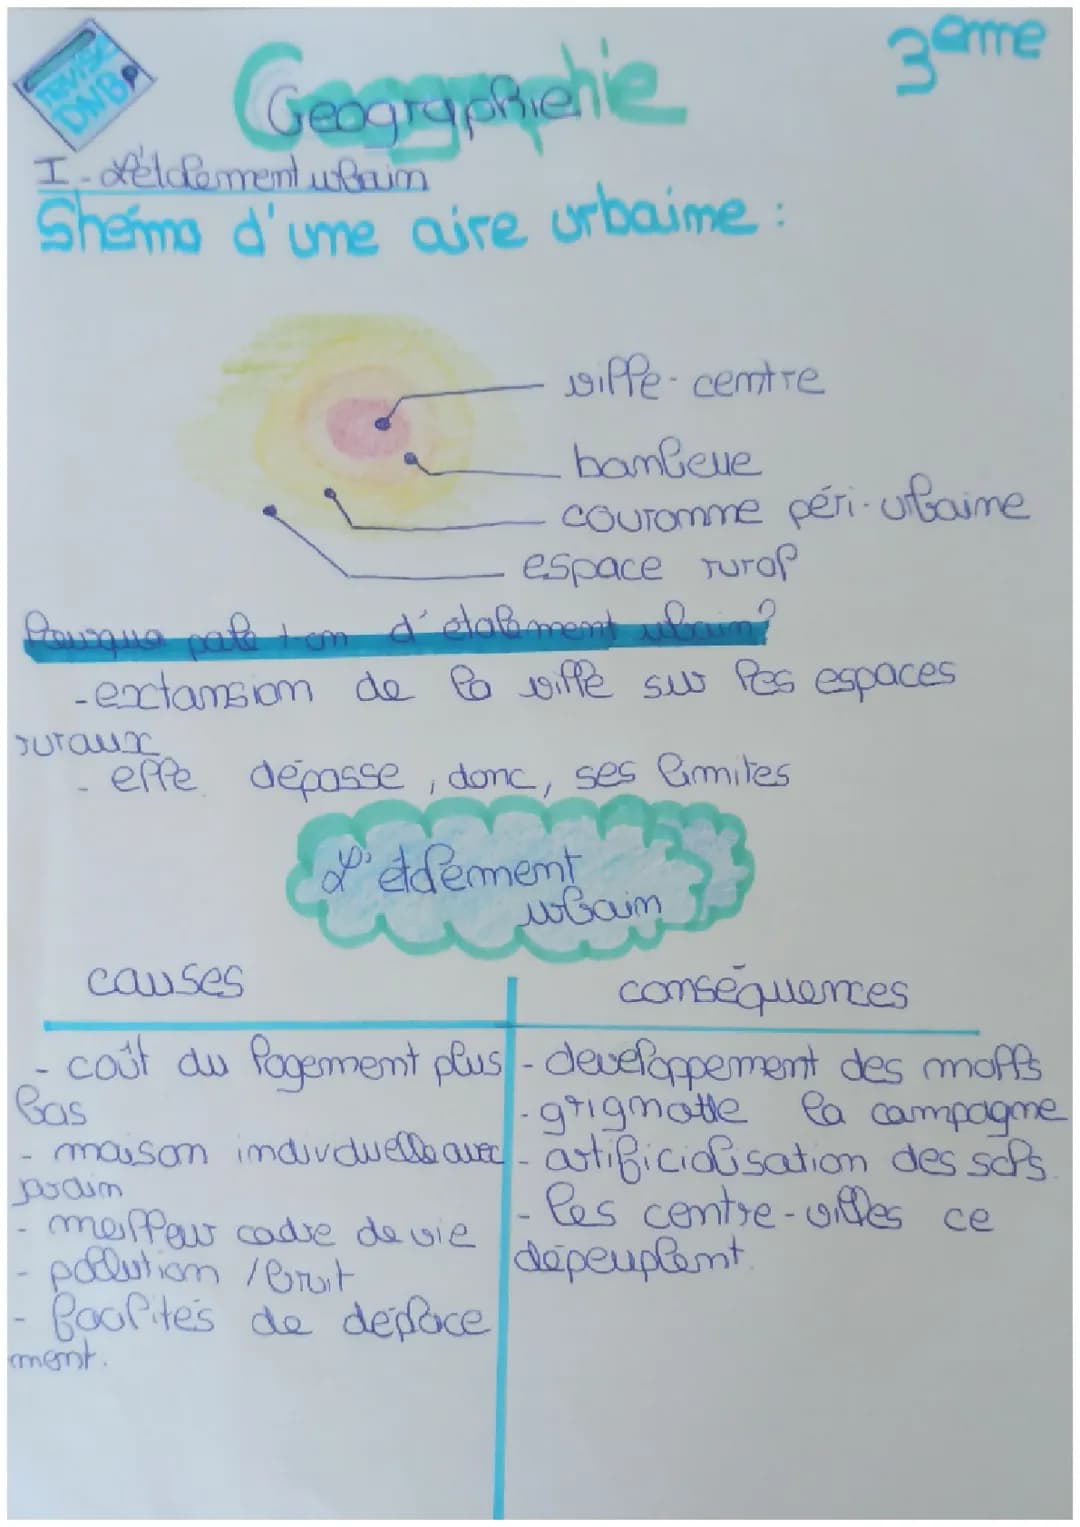 REVISE
DNB
Geographie
3eme
I - L'étalement urbain
Shéma d'une aire urbaine :
ville-centre
banlieue
couronne péri-urbaine
espace rural
Pourquoi parle t-on d'étalement urbain?
- extansion de la ville sur les espaces
ruraux
- elle dépasse, donc, ses limites
L'étalement
urbain
causes
conséquences
- coût du logement plus
bas
- maison individuelle avec
jardin
- meilleur cadre de vie
- pollution / bruit
- facilités de déplace
ment.
- developpement des malls
- grignotte la campagne
- artificialisation des sols.
- les centre-villes ce
dépeuplent.